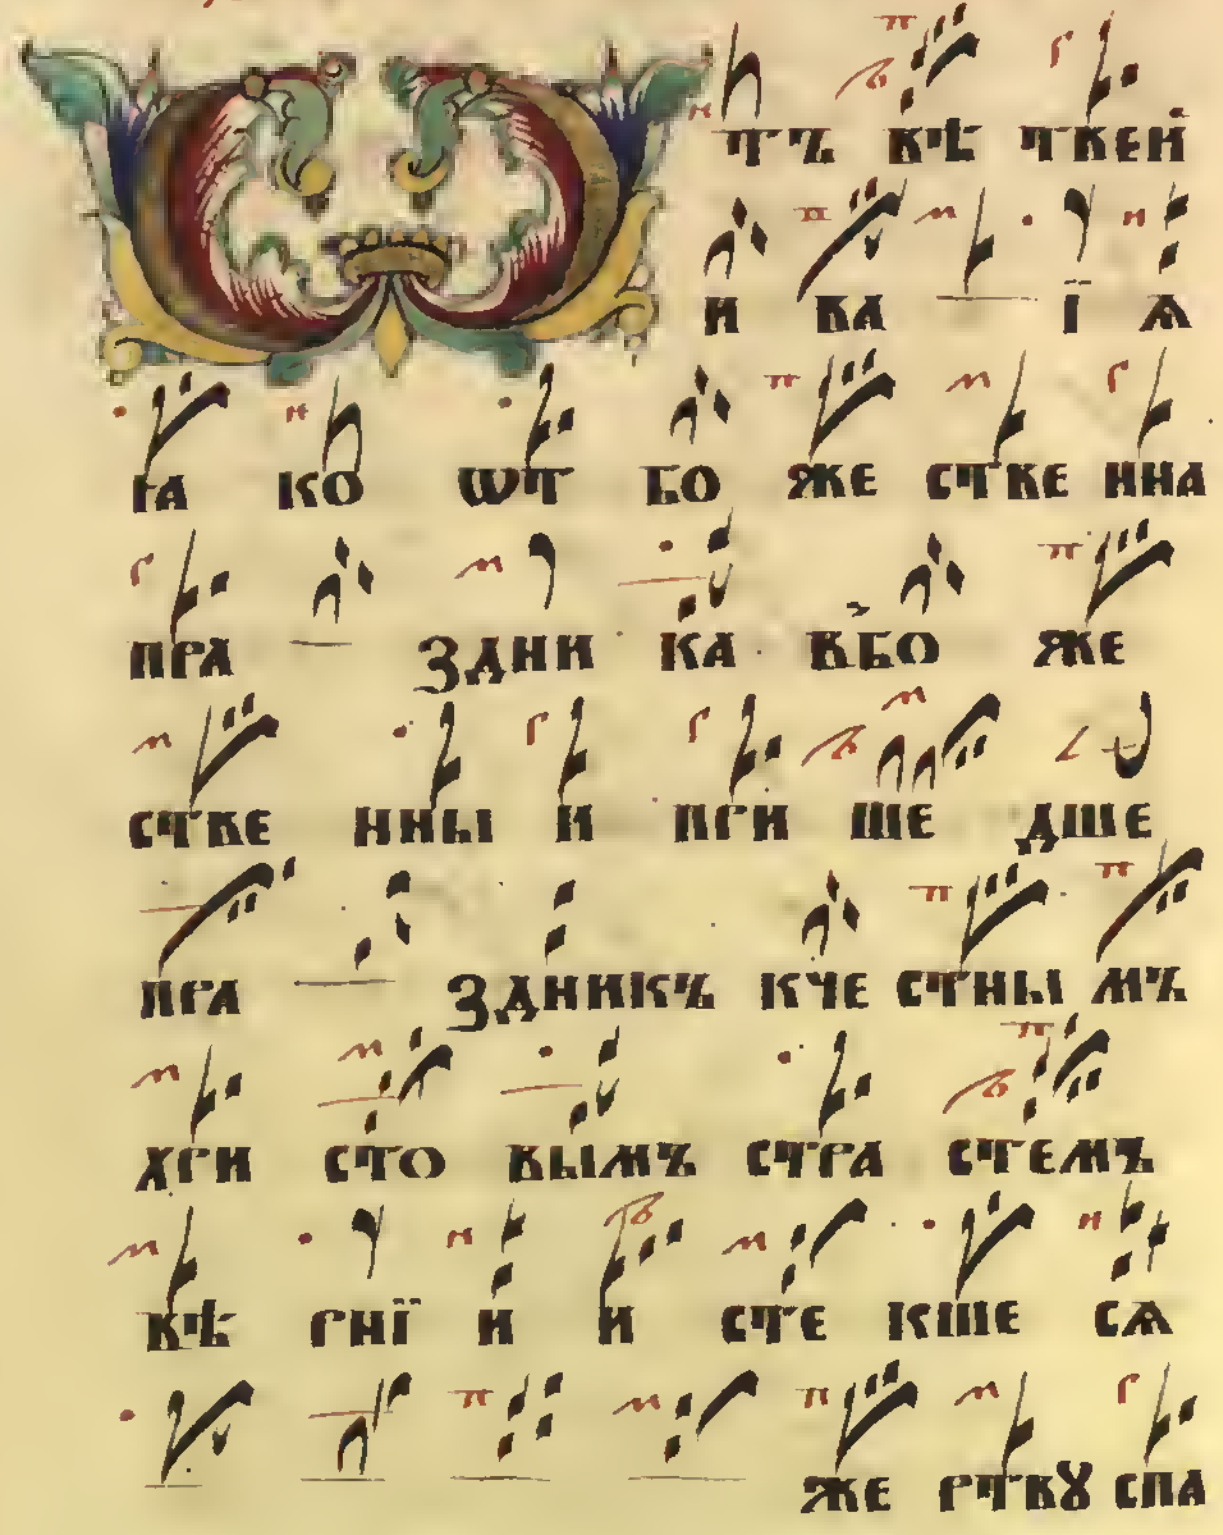 Ѡ ТЪ ВѢ ТВЕЙ
И ВА Ї Ѧ
ꙖА КО ѠТ БО ЖЕ СТВЕ ННА
ПРА ЗДНИ КА ВБО ЖЕ
СТВЕ ННЫ И ПРИ ШЕ ДШЕ
ПРА ЗДНИКЪ КЧЕ СТНЫ МЪ
ХРИ СТО ВЫМЪ СТРА СТЕМЪ
ВѢ РНЇ И И СТЕ КШЕ СѦ
ЖЕ РТВꙊ СПА